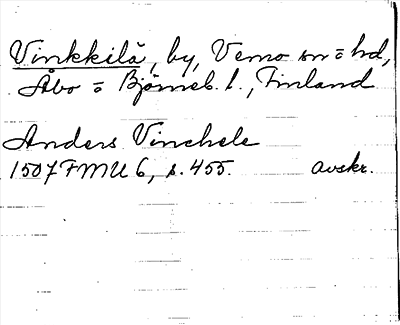 Vinkkilä, by, Vemo sn o hd,
Åbo o Björneb. l., Finland
Anders Vinchele
1507 FMU 6, s. 455. avskr.